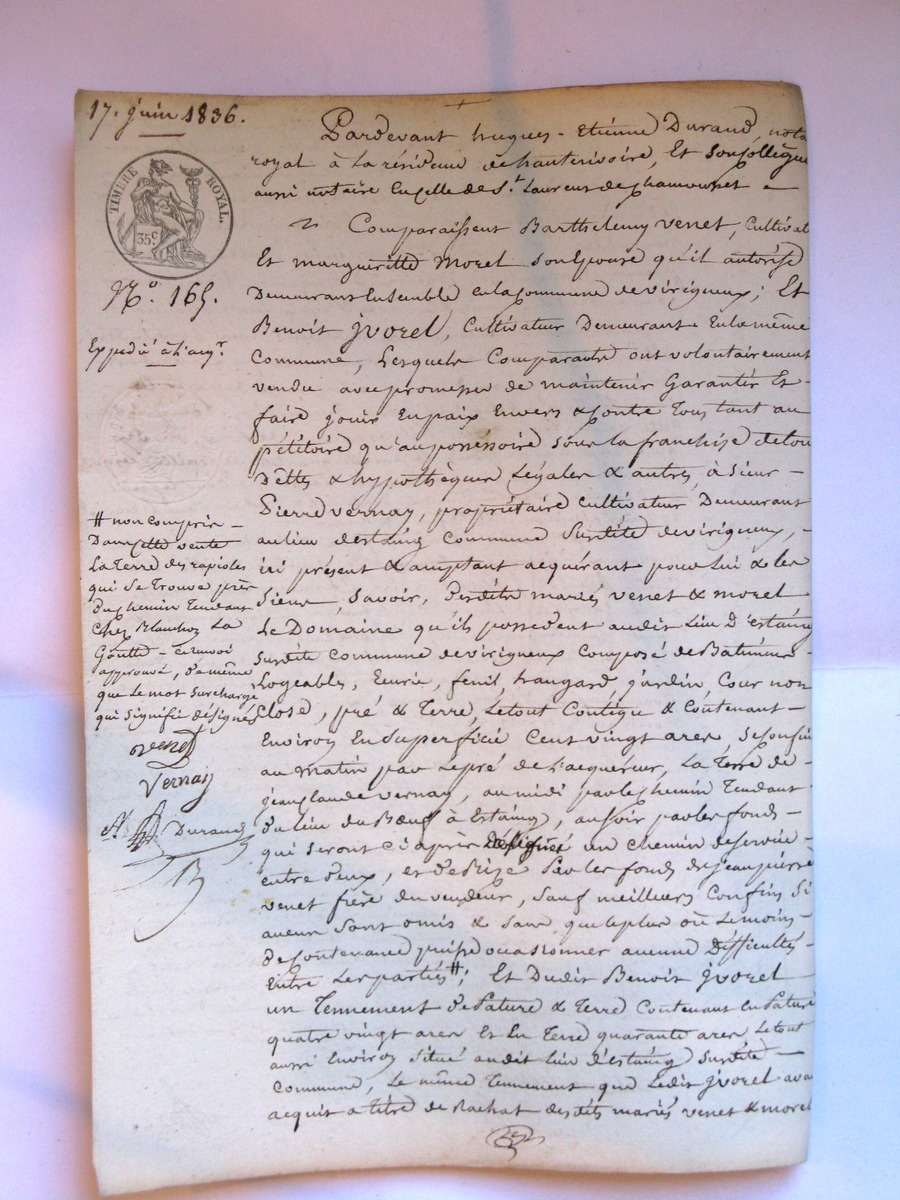 17. juin 1836.
TIMBRE ROYAL.
35c
No. 165.
Expedié à l'acqr.
Pardevant hugues-Etienne Durand, nota
royal à la résidence de hauterivoire, Et son Collègue
aussi notaire En celle de St. Laurent de Chamousset —
Comparaissent Barthelemy venet, Cultivat
Et margueritte Morel son Epouse qu'il autorise
Demeurant Ensemble en la Commune de virigneux; Et
Benoit jvorel, Cultivateur Demeurant En la même
Commune, Lesquels Comparants ont volontairement
vendu avec promesse de maintenir Garantir Et
faire jouir En paix Envers & Contre Tous tant au
pétitoire qu'au possessoire sous la franchise de tou
Dettes & hypothèques Légales & autres, à Sieur —
Pierre vernay, propriétaire cultivateur Demeurant
au lieu d'estaing Commune Susdite de virigneux, —
ici présent & acceptant acquérant pour Lui & les
Siens, Savoir, Desdits mariés venet & morel
Le Domaine qu'ils possedent audit Lieu D'estaing
Susdite Commune de virigneux Composé de Batiments
Logeables, Ecurie, fenil, hangard, jardin, Cour non
Close, pré & Terre, Le tout Contigu & Contenant —
Environ En Superficie Cent vingt ares, Se confin
au matin par Le pré de l'acquéreur, La Terre de —
jean Claude vernay, au midi par le chemin Tendant
du lieu du Bœuf à Estaing, au soir par les fonds —
qui seront ci après désignés un chemin de service
entre deux, et de Bize Par les fonds de jean pierre
venet frère du vendeur, Sauf meilleurs Confins Si
aucuns Sont omis & Sans que le plus ou Le moins —
de Contenance puisse occasionner aucune Difficultés —
Entre Les parties #; Et Dudit Benoit jvorel —
un Tennement de Pature & Terre Contenant En Pature
quatre vingt ares Et En Terre quarante ares Le tout
aussi Environ Situé audit Lieu d'estaing Susdite —
Commune, Le même Tennement que Ledit jvorel ava
acquit a titre de Rachat desdits mariés venet & morel
# non compris —
Dans Cette vente
La Terre des rapioles
qui Se trouve près
du chemin Tendant
Chez Blanchon La
Goutte — renvoi
approuvé, de même
que le mot Surchargé
qui signifie désignés
Venet
Vernay
Durand